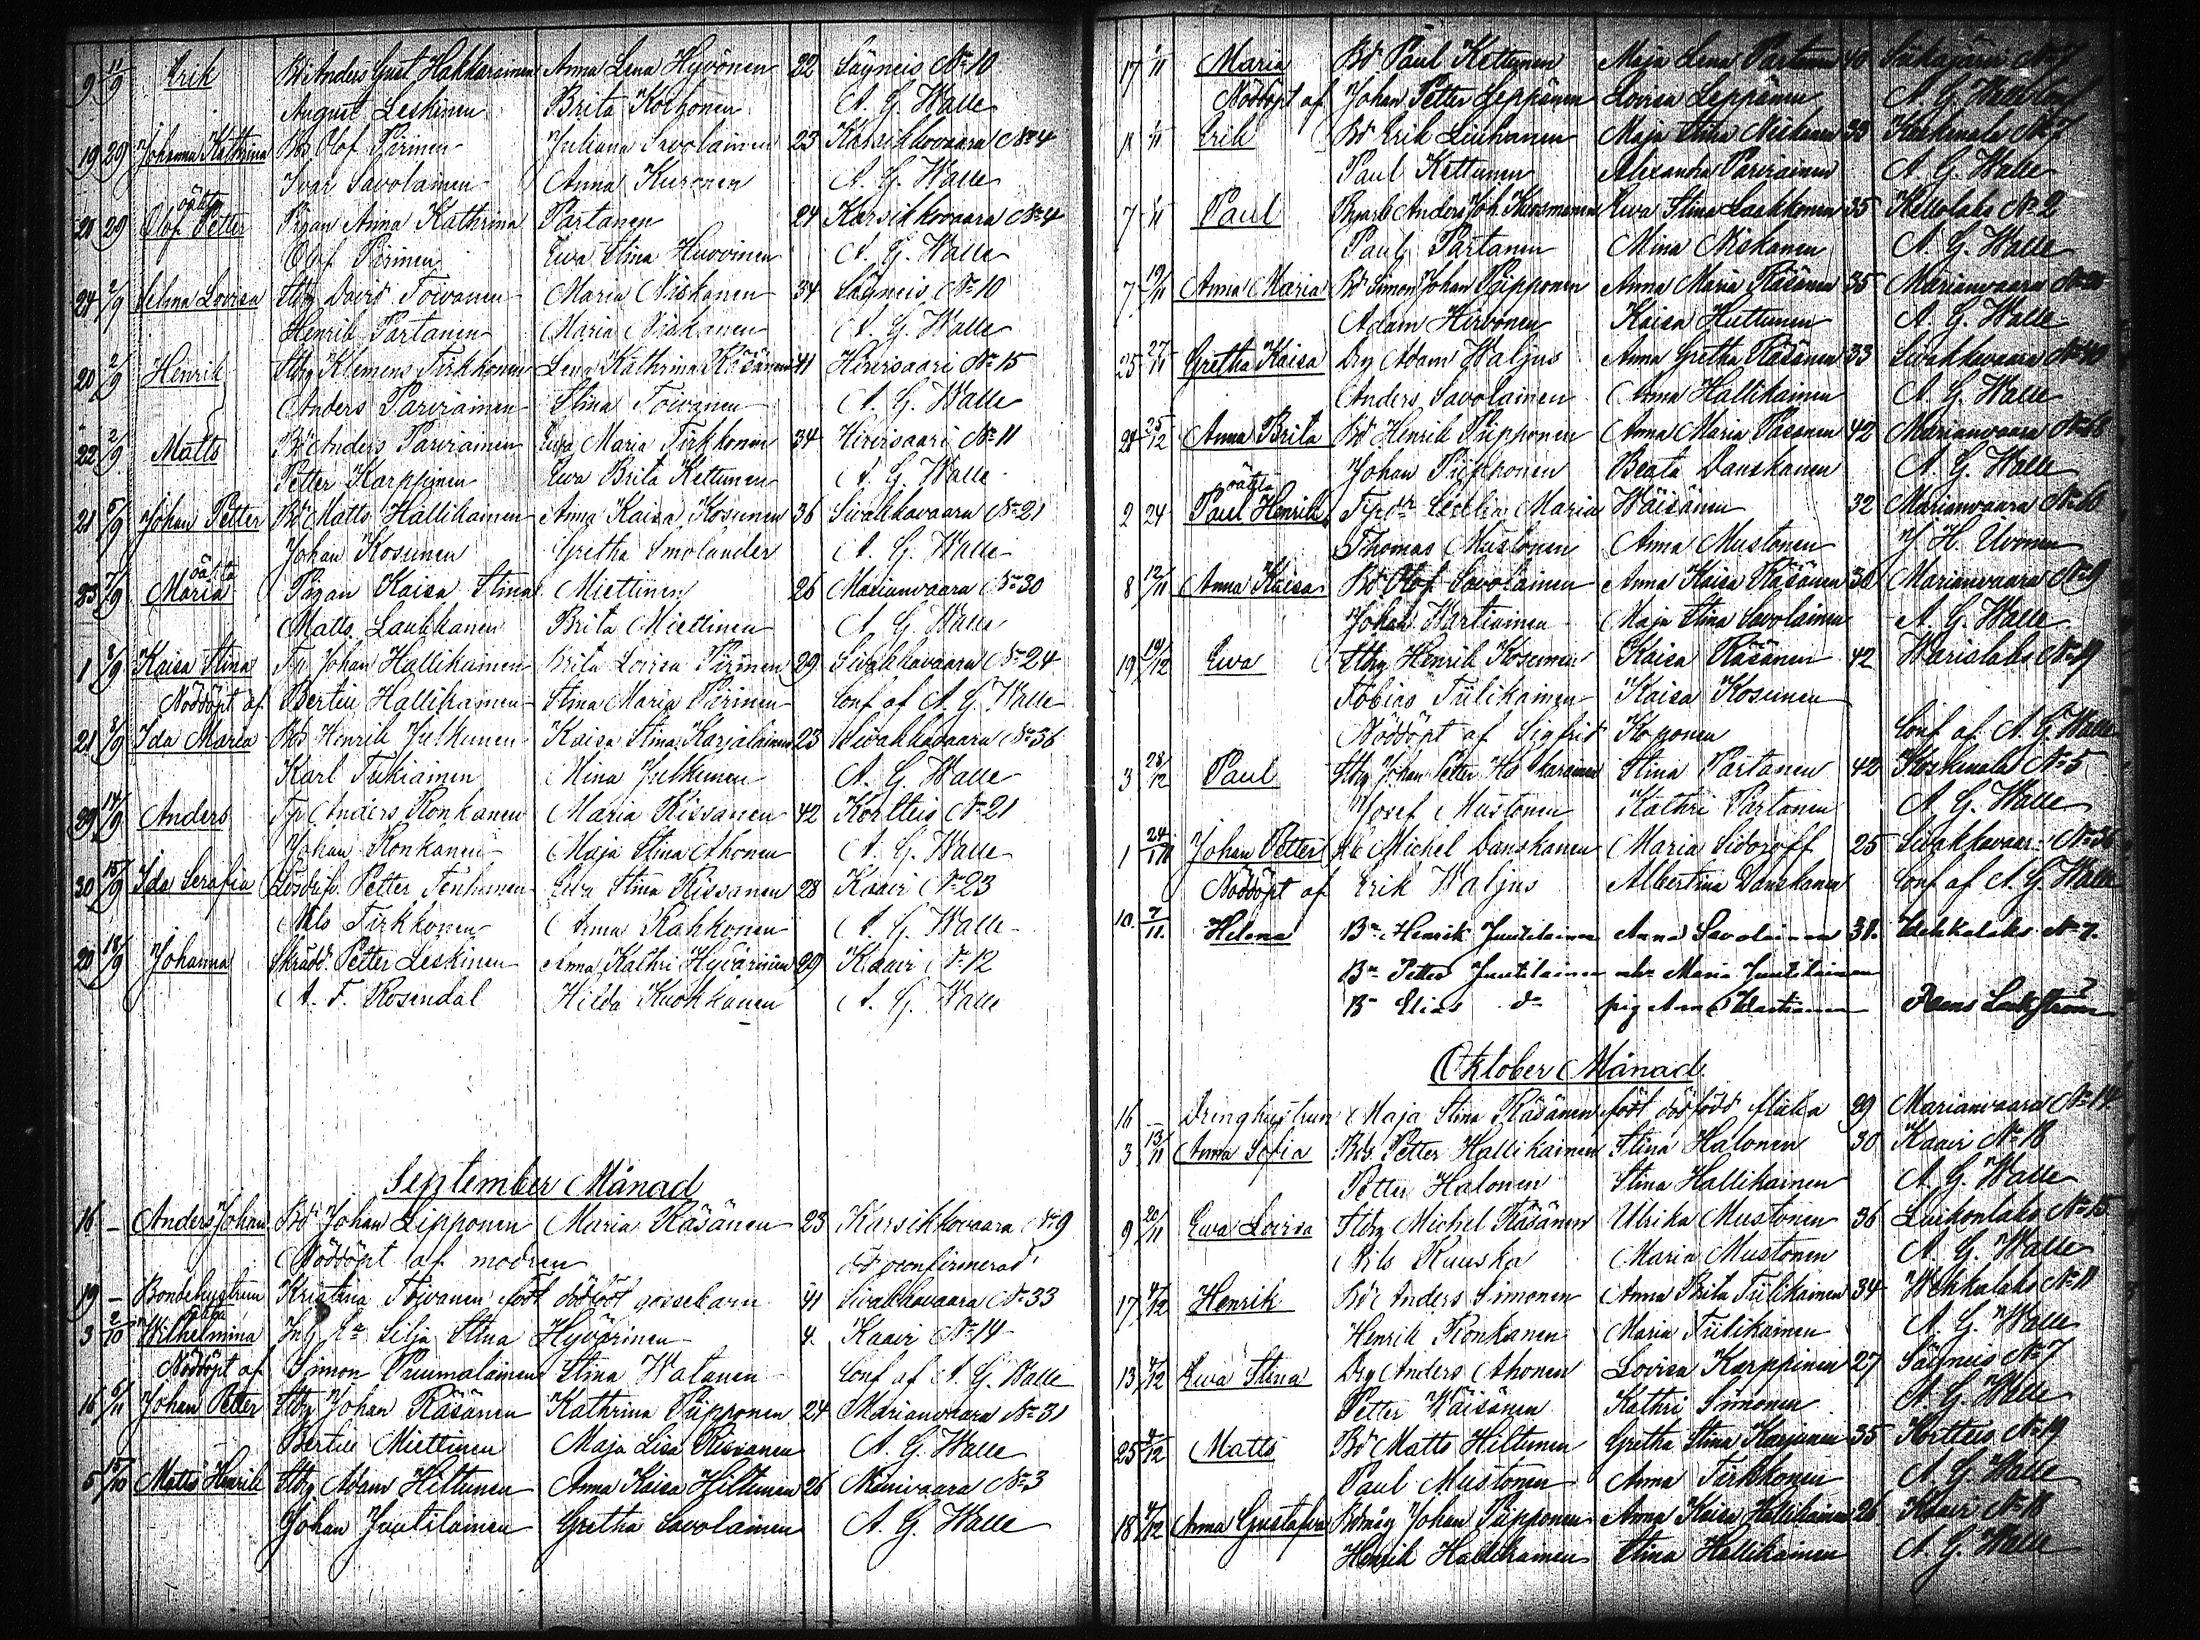 9 11/9 Erik Bd Anders Gust. Hakkarainen Anna Lena Hyvönen 22 Säyneis No 10
August Leskinen Brita Korhonen A. G. Walle
19 29 Johanna Kathrina Bds Olof Pirinen Juliana Savolainen 23 Karsikkovaara No 4
Ivar Savolainen Anna Kuronen A. G. Walle
oäkta
21 29 Olof Petter Pigan Anna Kathrina Partanen 24 Karsikkovaara No 4
Olof Pirinen Ewa Stina Huovinen A. G. Walle
24 2/9 Selma Lovisa Stbg David Toivanen Maria Niskanen 34 Säyneis No 10
Henrik Partanen Maria Niskanen A. G. Walle
20 2/9 Henrik Stbg Klemens Tirkkonen Lena Kathrina Räsänen 41 Hirvisaari No 15
Anders Parviainen Stina Toivanen A. G. Walle
22 2/9 Matts Bd Anders Parviainen Ewa Maria Tirkkonen 34 Hirvisaari No 11
Petter Karppinen Ewa Brita Kettunen A. G. Walle
21 5/9 Johan Petter Bd Matts Hallikainen Anna Kaisa Kosunen 36 Sivakkavaara No 21
Johan Kosunen Gretha Smolander A. G. Walle
oäkta
23 7/9 Maria Pigan Kaisa Stina Miettinen 26 Marianvaara No 30
Matts Laukkanen Brita Miettinen A. G. Walle
1 8/9 Kaisa Stina Tp Johan Hallikainen Brita Lovisa Pirinen 29 Sivakkavaara No 24
Nöddöpt af Bertil Hallikainen Stina Maria Pirinen Conf af A. G. Walle
21 8/9 Ida Maria Bds Henrik Julkunen Kaisa Stina Karjalainen 23 Sivakkavaara No 36
Karl Tukiainen Mina Julkunen A. G. Walle
29 14/9 Anders Tp Anders Ronkanen Maria Rissanen 42 Kortteis No 21
Johan Ronkanen Maja Stina Ahonen A. G. Walle
30 15/9 Ida Serafia Lösdrif. Petter Tenhunen Ewa Stina Rissanen 28 Kaavi No 23
Nils Tirkkonen Anna Rahkonen A. G. Walle
20 18/9 Johanna Skrädd. Petter Leskinen Anna Kathri Hyvärinen 29 Kaavi No 12
A. F. Rosendal Hilda Kuokkanen A. G. Walle
September Månad
16 – Anders Johan Bd Johan Lipponen Maria Räsänen 23 Karsikkovaara No 9
Nöddöpt af modren
19 – Bondehustrun Kristina Toivanen födt dödfödt gossebarn 41 Sivakkavaara No 33
oäkta
3 2/10 Wilhelmina Silja Stina Hyvärinen 4. Kaavi No 14
Nöddöpt af Simon Puumalainen Stina Watanen Conf af A. G. Walle
16 5/11 Johan Petter Stbg Johan Räsänen Kathrina Piipponen 24 Marianvaara No 31
Bertil Miettinen Maja Lisa Rissanen A. G. Walle
5 15/10 Matts Henrik Stbg Adam Hiltunen Anna Kaisa Hiltunen 26 Niinivaara No 3
Johan Juutilainen Gretha Savolainen A. G. Walle
17 1/11 Maria Bd Paul Kettunen Maja Lena Partanen 40 Siikajärvi No 7
Nöddöpt af Johan Petter Leppänen Lovisa Leppänen A. G. Walle Conf
1 1/11 Erik Bd Erik Liuhanen Maja Stina Niskanen 33 Koskenala No 7
Paul Kettunen Alexandra Parviainen A. G. Walle
7 1/11 Paul Anders Joh. Kuosmanen Ewa Stina Laakkonen 35 Kellolaks No 2
Paul Partanen Mina Niskanen A. G. Walle
7 19/11 Anna Maria Bd Simon Johan Piipponen Anna Maria Räsänen 35 Marianvaara
Adam Hirvonen Kaisa Huttunen A. G. Walle
25 27/11 Gretha Kaisa Drg Adam Waljus Anna Gretha Räsänen 33 Sivakkavaara No 40
Anders Savolainen Anna Hallikainen A. G. Walle
24 25/12 Anna Brita Bd Henrik Piipponen Anna Maria Pasanen 42 Marianvaara
Johan Piipponen Beata Danskanen A. G. Walle
oäkta
2 24 Paul Henrik Tp dr Cecilia Maria Wäisänen 32 Marianvaara
Thomas Mustonen Anna Mustonen J. H. Uvonen
8 12/11 Anna Kaisa Bd Olof Savolainen Anna Kaisa Räsänen 30 Marianvaara No 9
Johan Wartiainen Maja Stina Savolainen A. G. Walle
19 19/12 Ewa Stbg Henrik Kosunen Kaisa Räsänen 42 Warislaks No 19
Tobias Tiilikainen Kaisa Kosunen
Nöddöpt af Sigfrid Kogonen Conf af A. G. Walle
3 28/12 Paul Stbg Johan Petter Hakkarainen Stina Partanen 42 Koskenala No 5
Josef Mustonen Kathri Partanen A. G. Walle
1 24/11 Johan Petter Michel Danskanen Maria Sidoroff 25 Sivakkavaara No 36
Nöddöpt af Erik Waljus Albertina Danskanen Conf af A. G. Walle
10. 7/11. Helena Bn Henrik Juutilainen Anna Savolainen 38. Wehkalaks No 7.
Bn Petter Juutilainen Maria Juutilainen
Bn Elias dn pig Anna Wartiainen
Oktober Månad
16 – Drenghustrun Maja Stina Räsänen födt dödfödd flicka 29 Marianvaara No 14
3 13/11 Anna Sofia Bds. Petter Hallikainen Stina Halonen 30 Kaavi No 18
Petter Halonen Stina Hallikainen A. G. Walle
9 20/11 Ewa Lovisa Stbg Michel Räsänen Ulrika Mustonen 36 Luikonlaks No 15
Nils Ruuska Maria Mustonen A. G. Walle
17 4/12 Henrik Bd Anders Simonen Anna Brita Tiilikainen 34 Wehkalaks No 11
Henrik Ronkanen Maria Tiilikainen A. G. Walle
13 4/12 Ewa Stina Drg Anders Ahonen Lovisa Karppinen 27 Säyneis No 7
Petter Wäisänen Kathri Simonen A. G. Walle
25 Matts Bd Matts Hiltunen Gretha Stina Karjunen 35 Kortteis No 19
Paul Mustonen Anna Tirkkonen A. G. Walle
18 Anna Gustafva Bdmåg Johan Piipponen Anna Kaisa Hallikainen 26 Kaavi No 18
Henrik Hallikainen Stina Hallikainen A. G. Walle